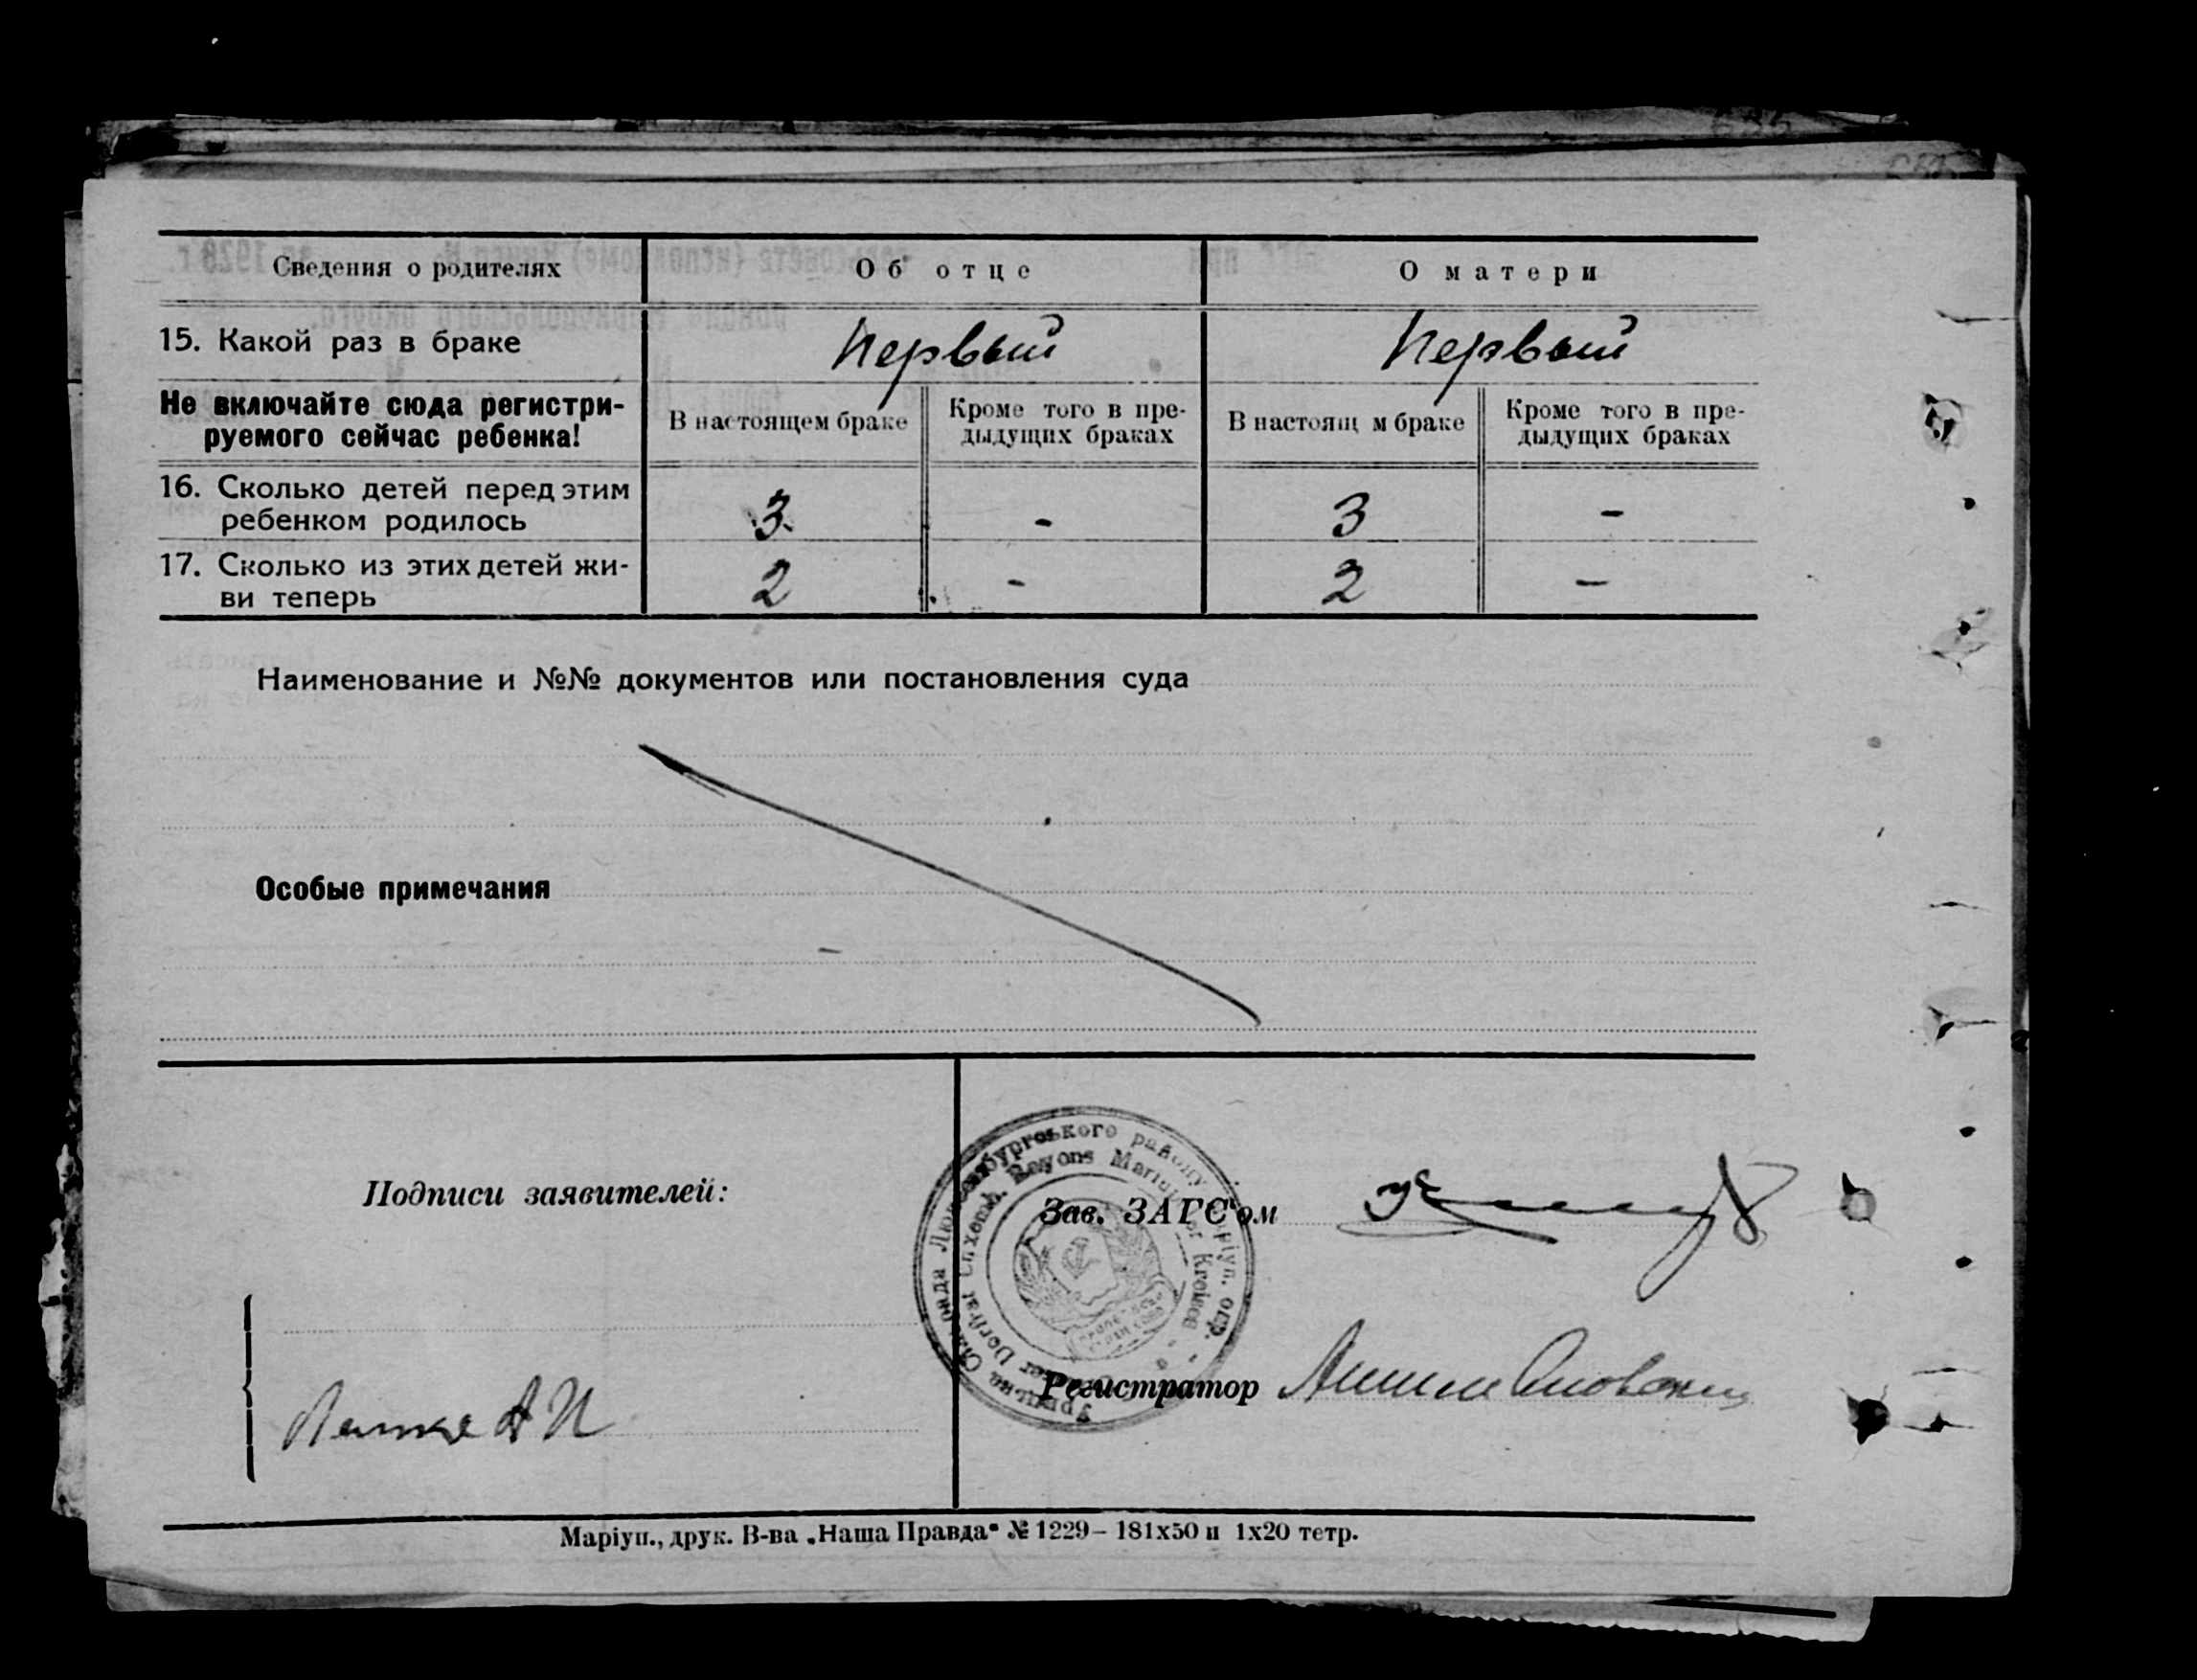 Сведения о родителях Об отце О матери
15. Какой раз в браке Первый Первый
Не включайте сюда регистри-
руемого сейчас ребенка!
В настоящем браке Кроме того в пре-
дыдущих браках В настоящ м браке Кроме того в пре-
дыдущих браках
16. Сколько детей перед этим
ребенком родилось 3 - 3 -
17. Сколько из этих детей жи-
ви теперь 2 - 2 -
Наименование и №№ документов или постановления суда
Особые примечания
Подписи заявителей:
Зав. ЗАГС'ом
Регистратор
А И
Маріуп., друк. В-ва „Наша Правда" № 1229 – 181х50 и 1х20 тетр.